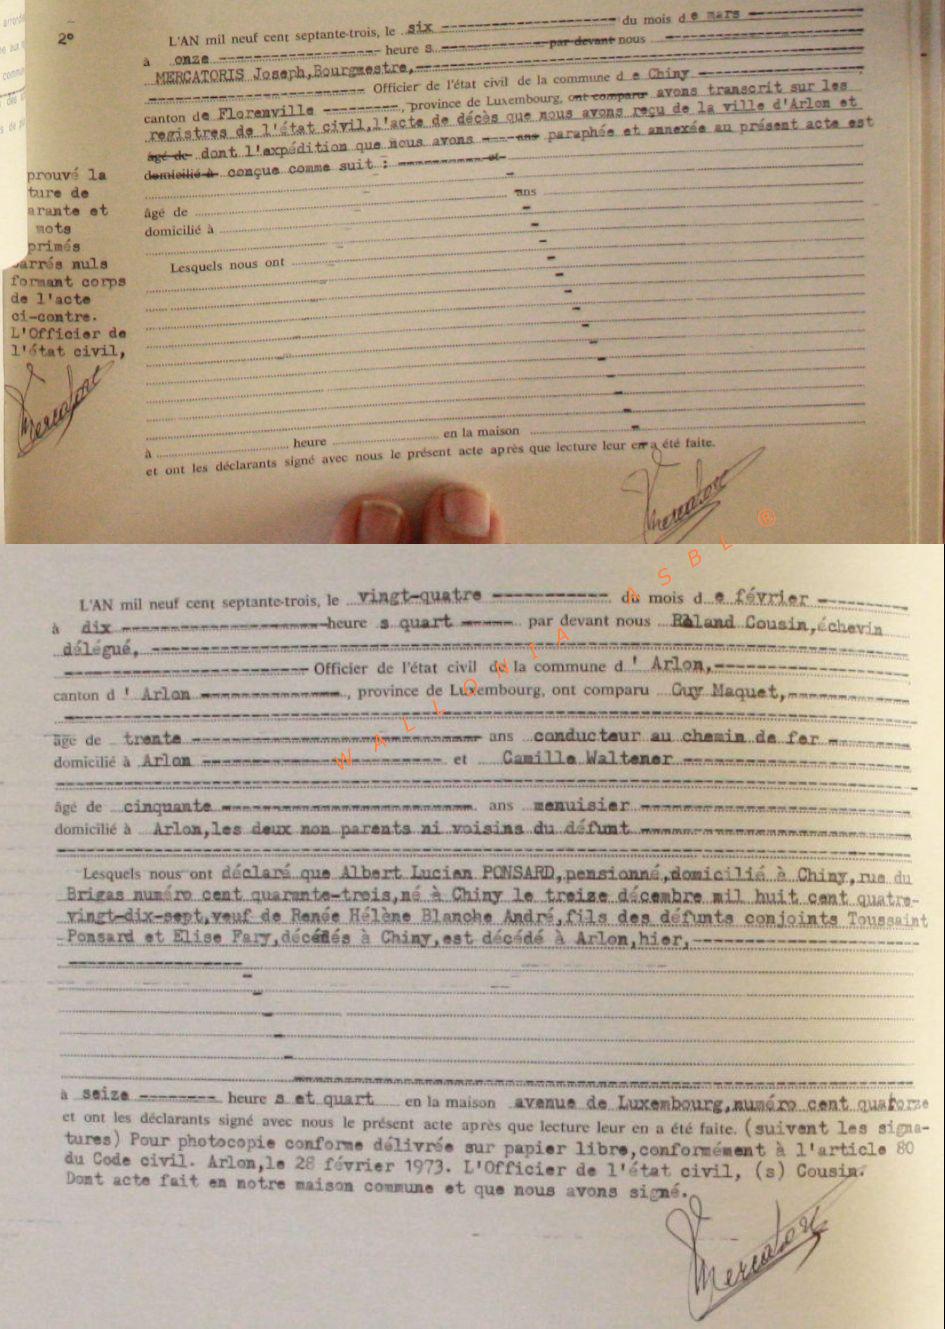 2°
L'AN mil neuf cent septante-trois, le six du mois de mars
à onze heure s par devant nous
MERCATORIS Joseph,Bourgmestre,
Officier de l'état civil de la commune d e Chiny
canton de Florenville , province de Luxembourg, ont comparu avons transcrit sur les
registres de l'état civil,l'acte de décès que nous avons reçu de la ville d'Arlon et
âgé de dont l'expédition que nous avons ans paraphée et annexée au présent acte est
domicilié à conçue comme suit : et
ans
âgé de
domicilié à
Lesquels nous ont
à heure en la maison
et ont les déclarants signé avec nous le présent acte après que lecture leur en a été faite.
prouvé la
ture de
arante et
mots
primés
arrés nuls
formant corps
de l'acte
ci-contre.
L'Officier de
l'état civil,
Mercatoris
Mercatoris
L'AN mil neuf cent septante-trois, le vingt-quatre du mois d e février
à dix heure s quart par devant nous Roland Cousin,échevin
délégué,
Officier de l'état civil de la commune d ' Arlon,
canton d ' Arlon , province de Luxembourg, ont comparu Guy Maquet,
âgé de trente ans conducteur au chemin de fer
domicilié à Arlon et Camille Waltener
âgé de cinquante ans menuisier
domicilié à Arlon,les deux non parents ni voisins du défunt
Lesquels nous ont déclaré que Albert Lucien PONSARD,pensionné,domicilié à Chiny,rue du
Brigas numéro cent quarante-trois,né à Chiny le treize décembre mil huit cent quatre-
vingt-dix-sept,veuf de Renée Hélène Blanche André,fils des défunts conjoints Toussaint
Ponsard et Elise Fary,décédés à Chiny,est décédé à Arlon,hier,
à seize heure s et quart en la maison avenue de Luxembourg,numéro cent quatorze
et ont les déclarants signé avec nous le présent acte après que lecture leur en a été faite. (suivent les signa-
tures) Pour photocopie conforme délivrée sur papier libre,conformément à l'article 80
du Code civil. Arlon,le 28 février 1973. L'Officier de l'état civil, (s) Cousin.
Dont acte fait en notre maison commune et que nous avons signé.
Mercatoris
WALLONIA ASBL ®